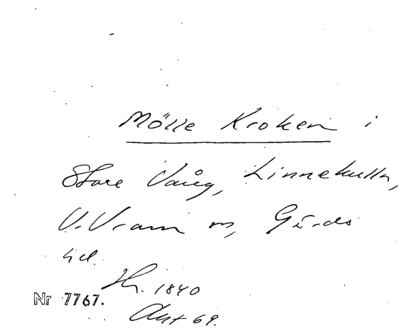 Mölle Kroken i
Store Vång, Linnekulla,
V. Vram sn, Gärds
hd.
Hr. 1840
Nr 7767.
Akt 69.